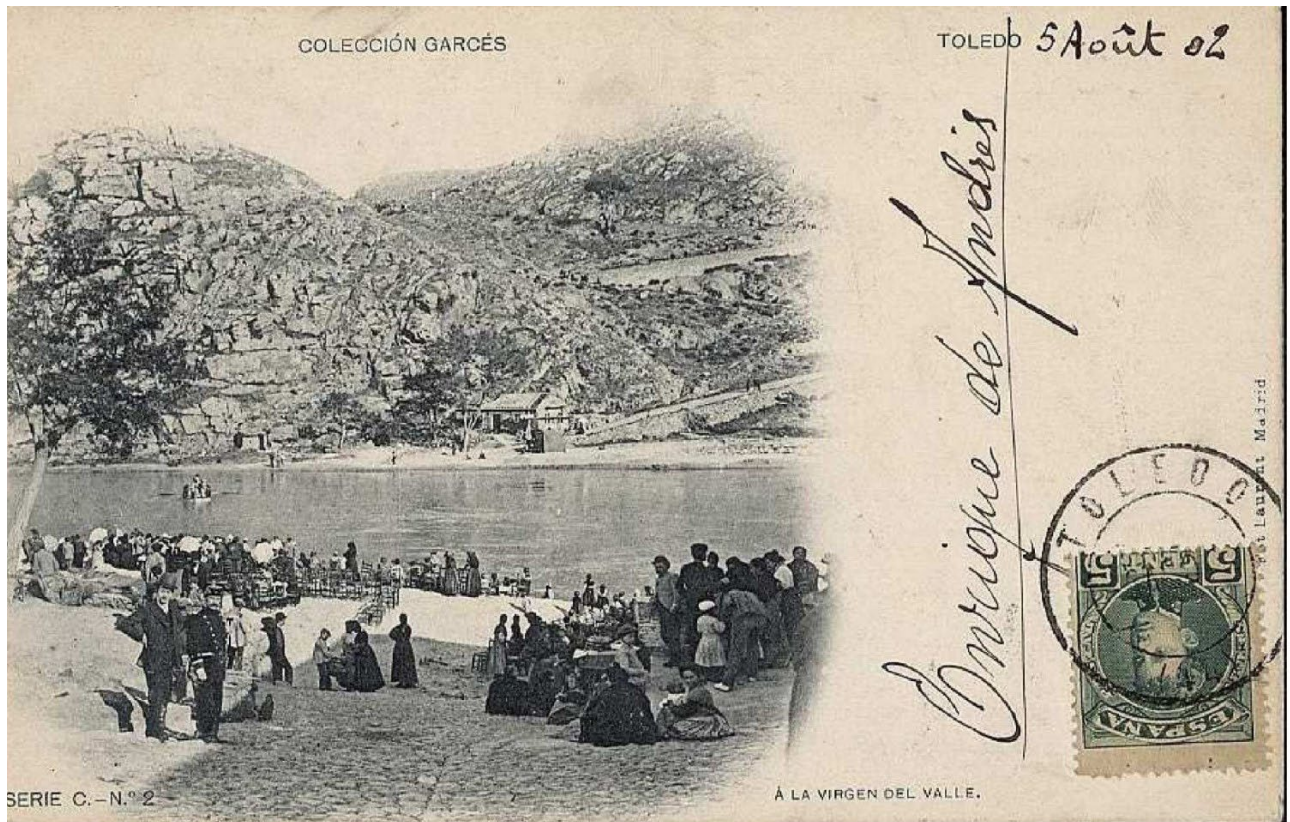 COLECCIÓN GARCÉS
TOLEDO 5 Août 02
Enrique de Andrés
Laurent Madrid
TOLEDO
5 CENT 5
ESPAÑA
SERIE C.-N.º 2
Á LA VIRGEN DEL VALLE.